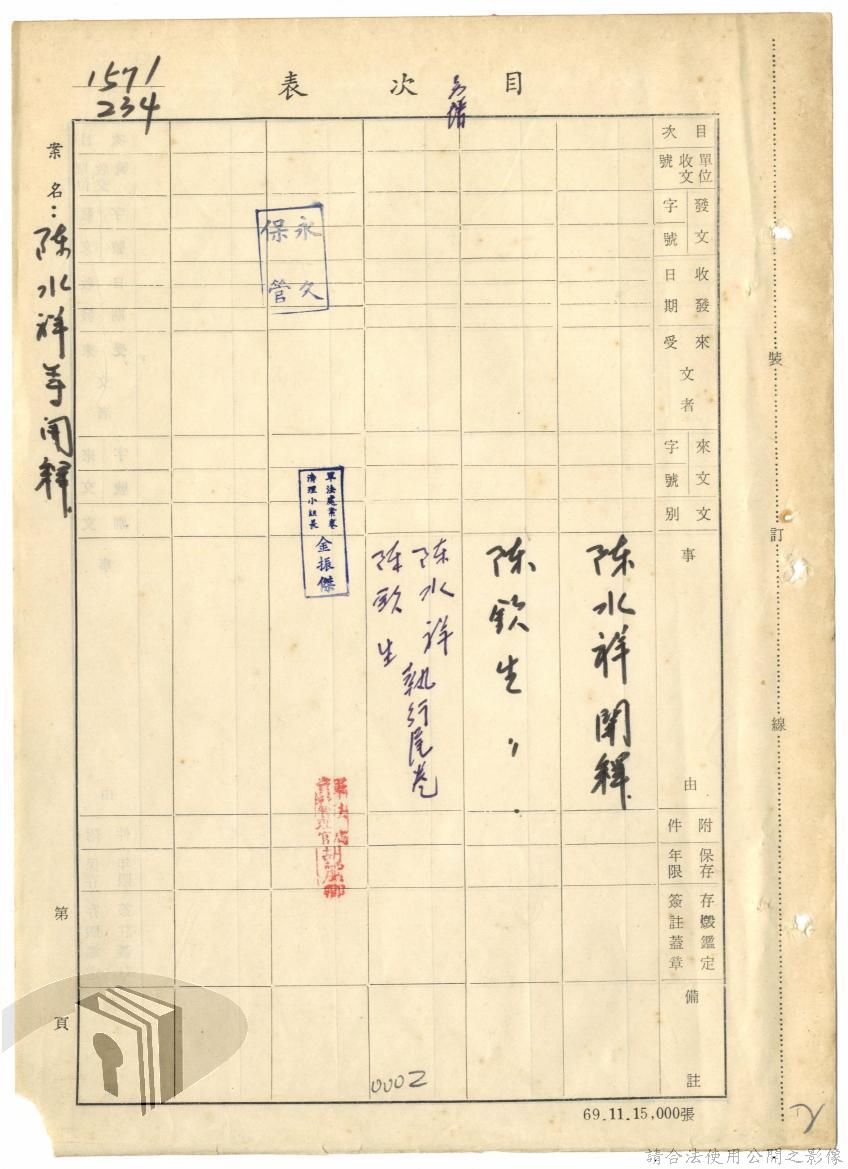 1571
234
目次表
案名：陳水祥等開釋
目次
單位收文號
發文字號
收發日期
來文受文者
來文字號
文別
事由
附件
保存年限
存燬鑑定簽註蓋章
備註
陳水祥開釋
陳欽生〃
陳水祥執行尾卷
陳欽生
永久保管
軍法處案卷清理小組長
金振傑
0002
裝訂線
第頁
69.11.15,000張
請合法使用公開之影像